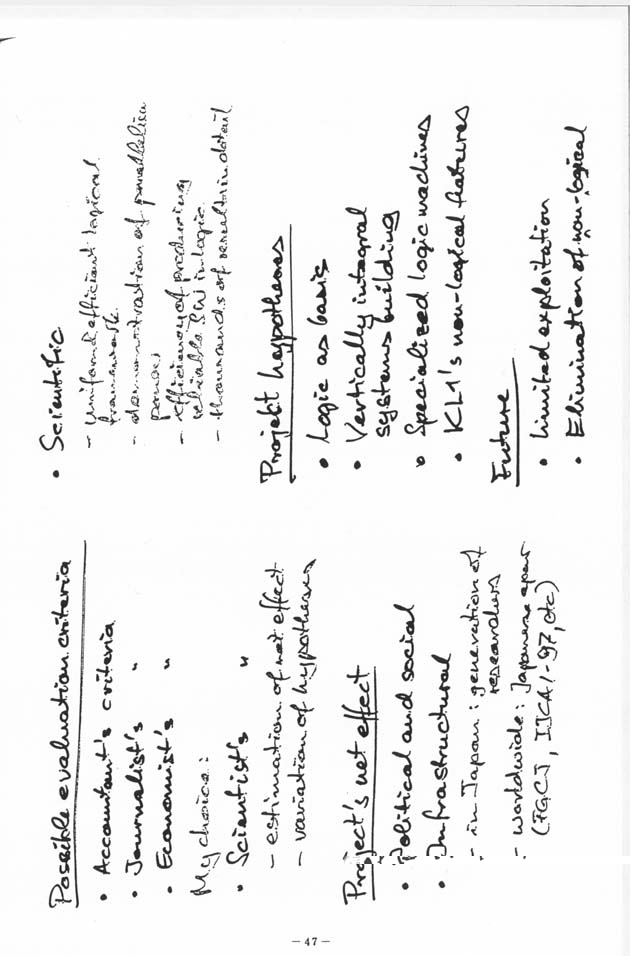 Possible evaluation criteria
• Accountant's criteria
• Journalist's "
• Economist's "
My choice:
• Scientist's "
– estimation of net effect
– variation of hypotheses
Project's net effect
• Political and social
• Infrastructural
– in Japan: generation of
researchers
– worldwide: Japanese
(FGCS, IJCAI-97, etc)
• Scientific
– uniform & efficient logical
framework
– demonstration of parallelism
power
– efficiency of producing
reliable SW in logic
– thousands of results in detail
Projekt hypotheses
• Logic as basis
• Vertically integral
systems building
• Specialized logic machines
• KL1's non-logical features
Future
• Limited exploitation
• Elimination of non-logical
— 47 —